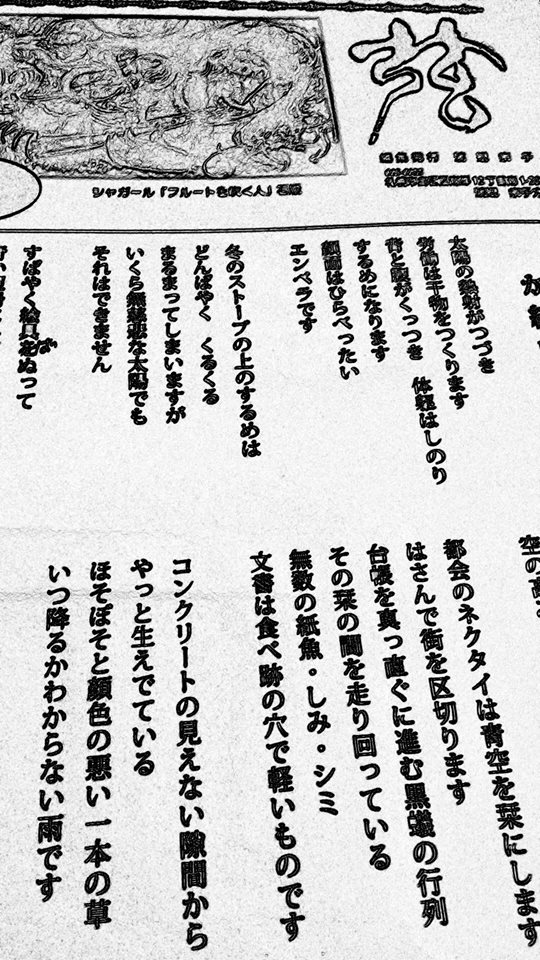 シャガール「フルートを吹く人」石版
編集発行
空の高
太陽の熱射がつづき
労働は干物をつくります
背と腹がくっつき 体軽はしのり
するめになります
顔面はひらべったい
エンペラです
冬のストーブの上のするめは
どんばやく くるくる
まるまってしまいますが
いくら無慈悲な太陽でも
それはできません
すばやく絵具をぬって
都会のネクタイは青空を栞にします
はさんで街を区切ります
台帳を真っ直ぐに進む黒蟻の行列
その栞の間を走り回っている
無数の紙魚。しみ。シミ
文書は食べ跡の穴で軽いものです
コンクリートの見えない隙間から
やっと生えでている
ほそぼそと顔色の悪い一本の草
いつ降るかわからない雨です